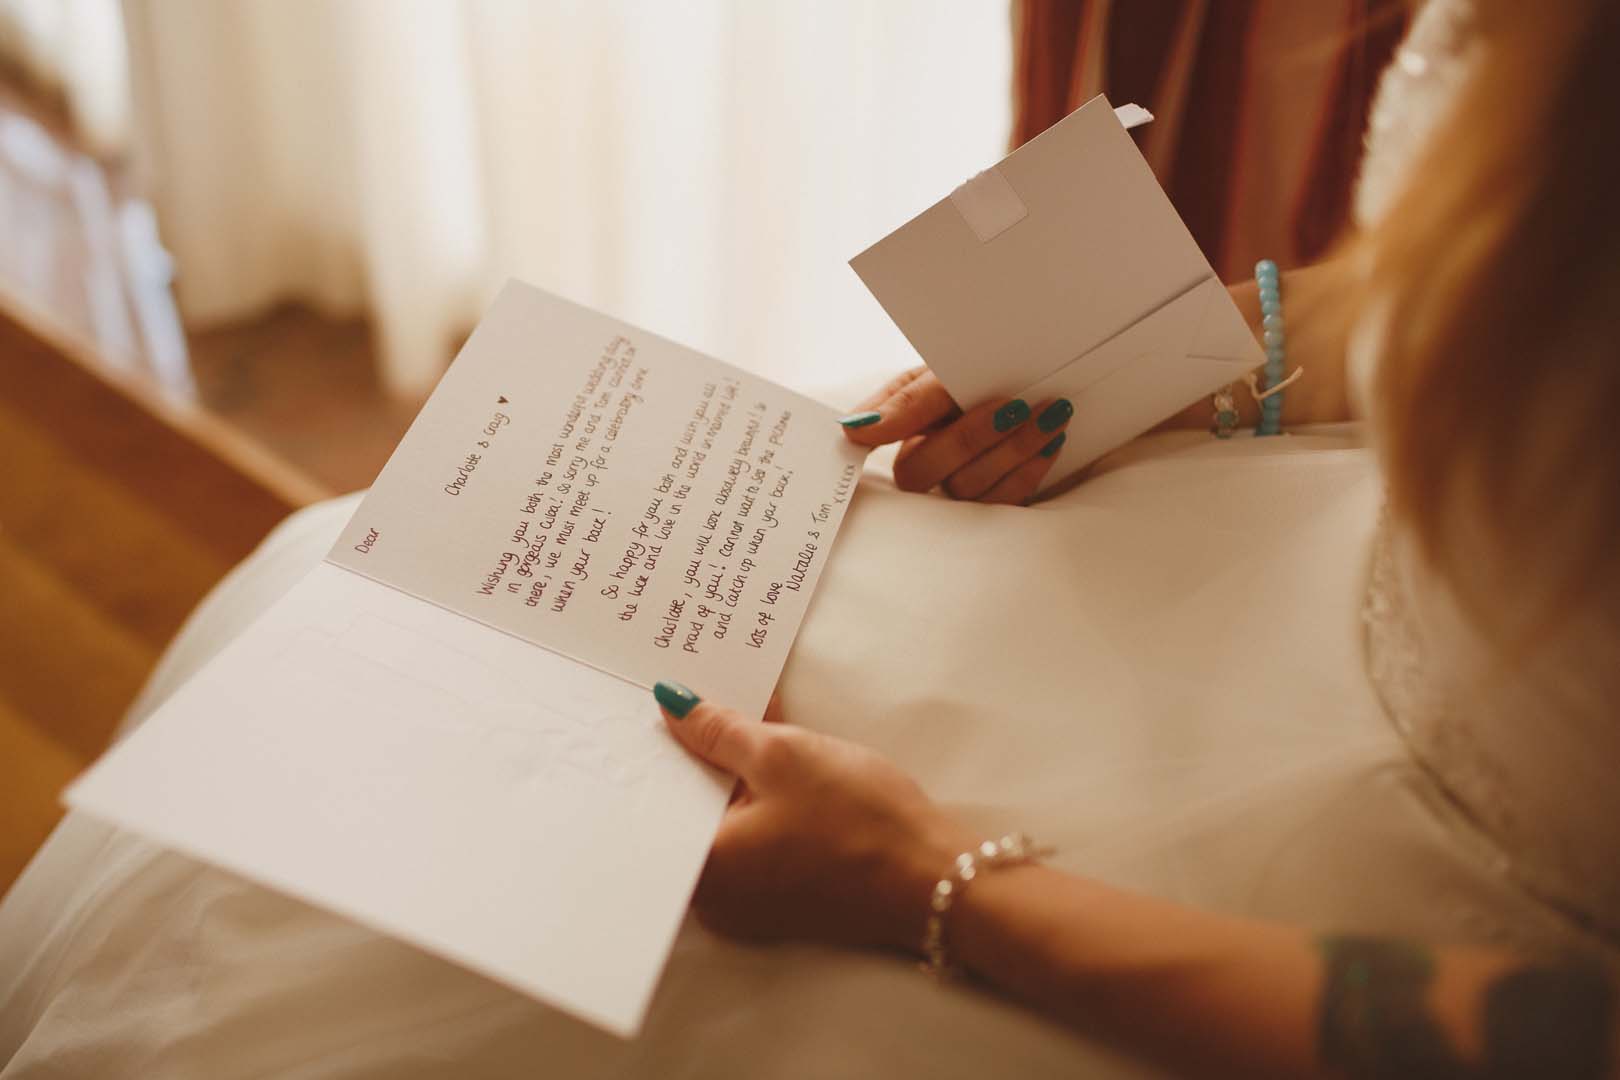 Dear
Charlotte & Craig ♥
Wishing you both the most wonderful wedding day
in gorgeous Cuba! So sorry me and Tom cannot be
there, we must meet up for a celebratory drink
when your back!
So happy for you both and wish you all
the luck and love in the world in married life!
Charlotte, you will look absolutely beautiful! So
proud of you! Cannot wait to see the pictures
and catch up when your back!
lots of love
Natalie & Tom xxxxxx